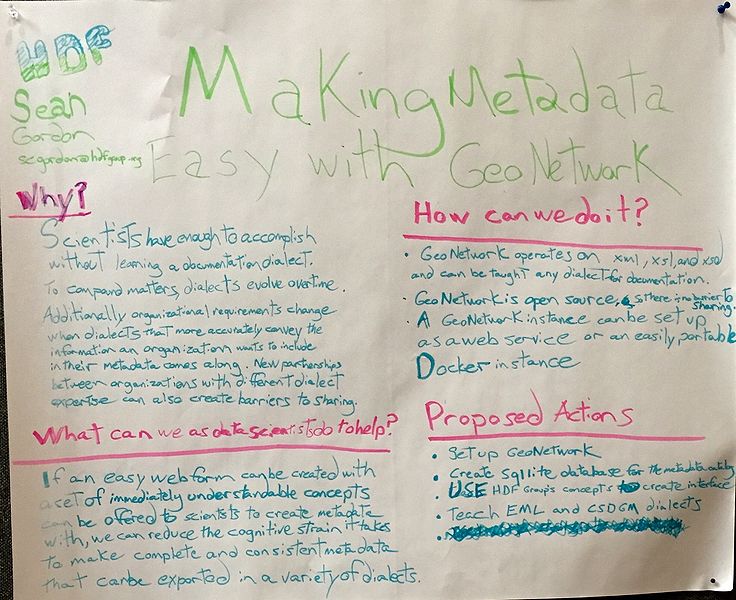 HDF
Sean
Gordon
scgordon@hdfgroup.org
Making Metadata
Easy with GeoNetwork
Why?
Scientists have enough to accomplish
without learning a documentation dialect.
To compound matters, dialects evolve overtime.
Additionally organizational requirements change
when dialects that more accurately convey the
information an organization wants to include
in their metadata comes along. New partnerships
between organizations with different dialect
expertise can also create barriers to sharing.
What can we as data scientists do to help?
If an easy web form can be created with
a set of immediately understandable concepts
can be offered to scientists to create metadata
with, we can reduce the cognitive strain it takes
to make complete and consistent metadata
that can be exported in a variety of dialects.
How can we do it?
• GeoNetwork operates on xml, xsl, and xsd
and can be taught any dialect for documentation.
• GeoNetwork is open source, so there is no barrier to
sharing.
• A GeoNetwork instance can be set up
as a web service or an easily portable
Docker instance
Proposed Actions
• Set up GeoNetwork
• Create sqllite database for the metadata catalog
• USE HDF Group's concepts to create interface
• Teach EML and CSDGM dialects